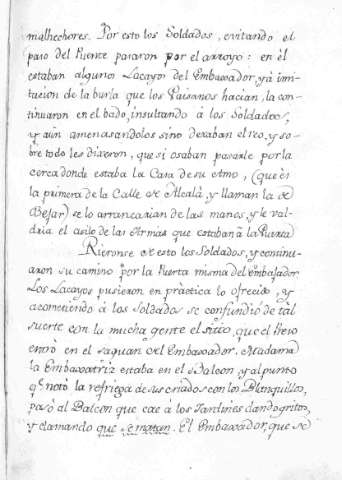 malhechores. Por esto los Soldados, evitando el
paso del Puente pasaron por el arroyo: en èl
estaban alguno Lacayos del Embaxador, y à imi-
tucion de la burla que los Paisanos hacian, la con-
tinuaron en el bado, insultando à los Soldados,
y aun amenasandolos sino dexaban el reo, y so-
bre todo les dixeron, que si osaban pasarle por la
cerca donde estaba la Casa de su Amo, (que es
la primera de la Calle de Alcalà, y llaman la de
Bejar) se lo arrancarian de las manos, y le val-
dria el asilo de las Armas que estaban à la Puerta
Rieronse de esto los Soldados, y continu-
aron su camino por la Puerta misma del embajador
Los Lacayos pusieron en pràctica lo ofrecido, y
acometiendo à los Soldados se confundiò de tal
suerte con la mucha gente el sitio, que el Reo
entrò en el saguan del Embaxador. Madama
la Embaxatriz estaba en el Balcon, y al punto
q̃ notò la refriega de sus criados con los Blanquillos,
pasò al Balcon que cae à los Jardines dando gritos,
y clamando que se matan. El Embaxador, que se